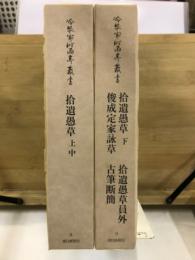 冷泉家時雨亭叢書
拾遺愚草 下 拾遺愚草員外
俊成定家詠草 古筆断簡
冷泉家時雨亭叢書
拾遺愚草 上中